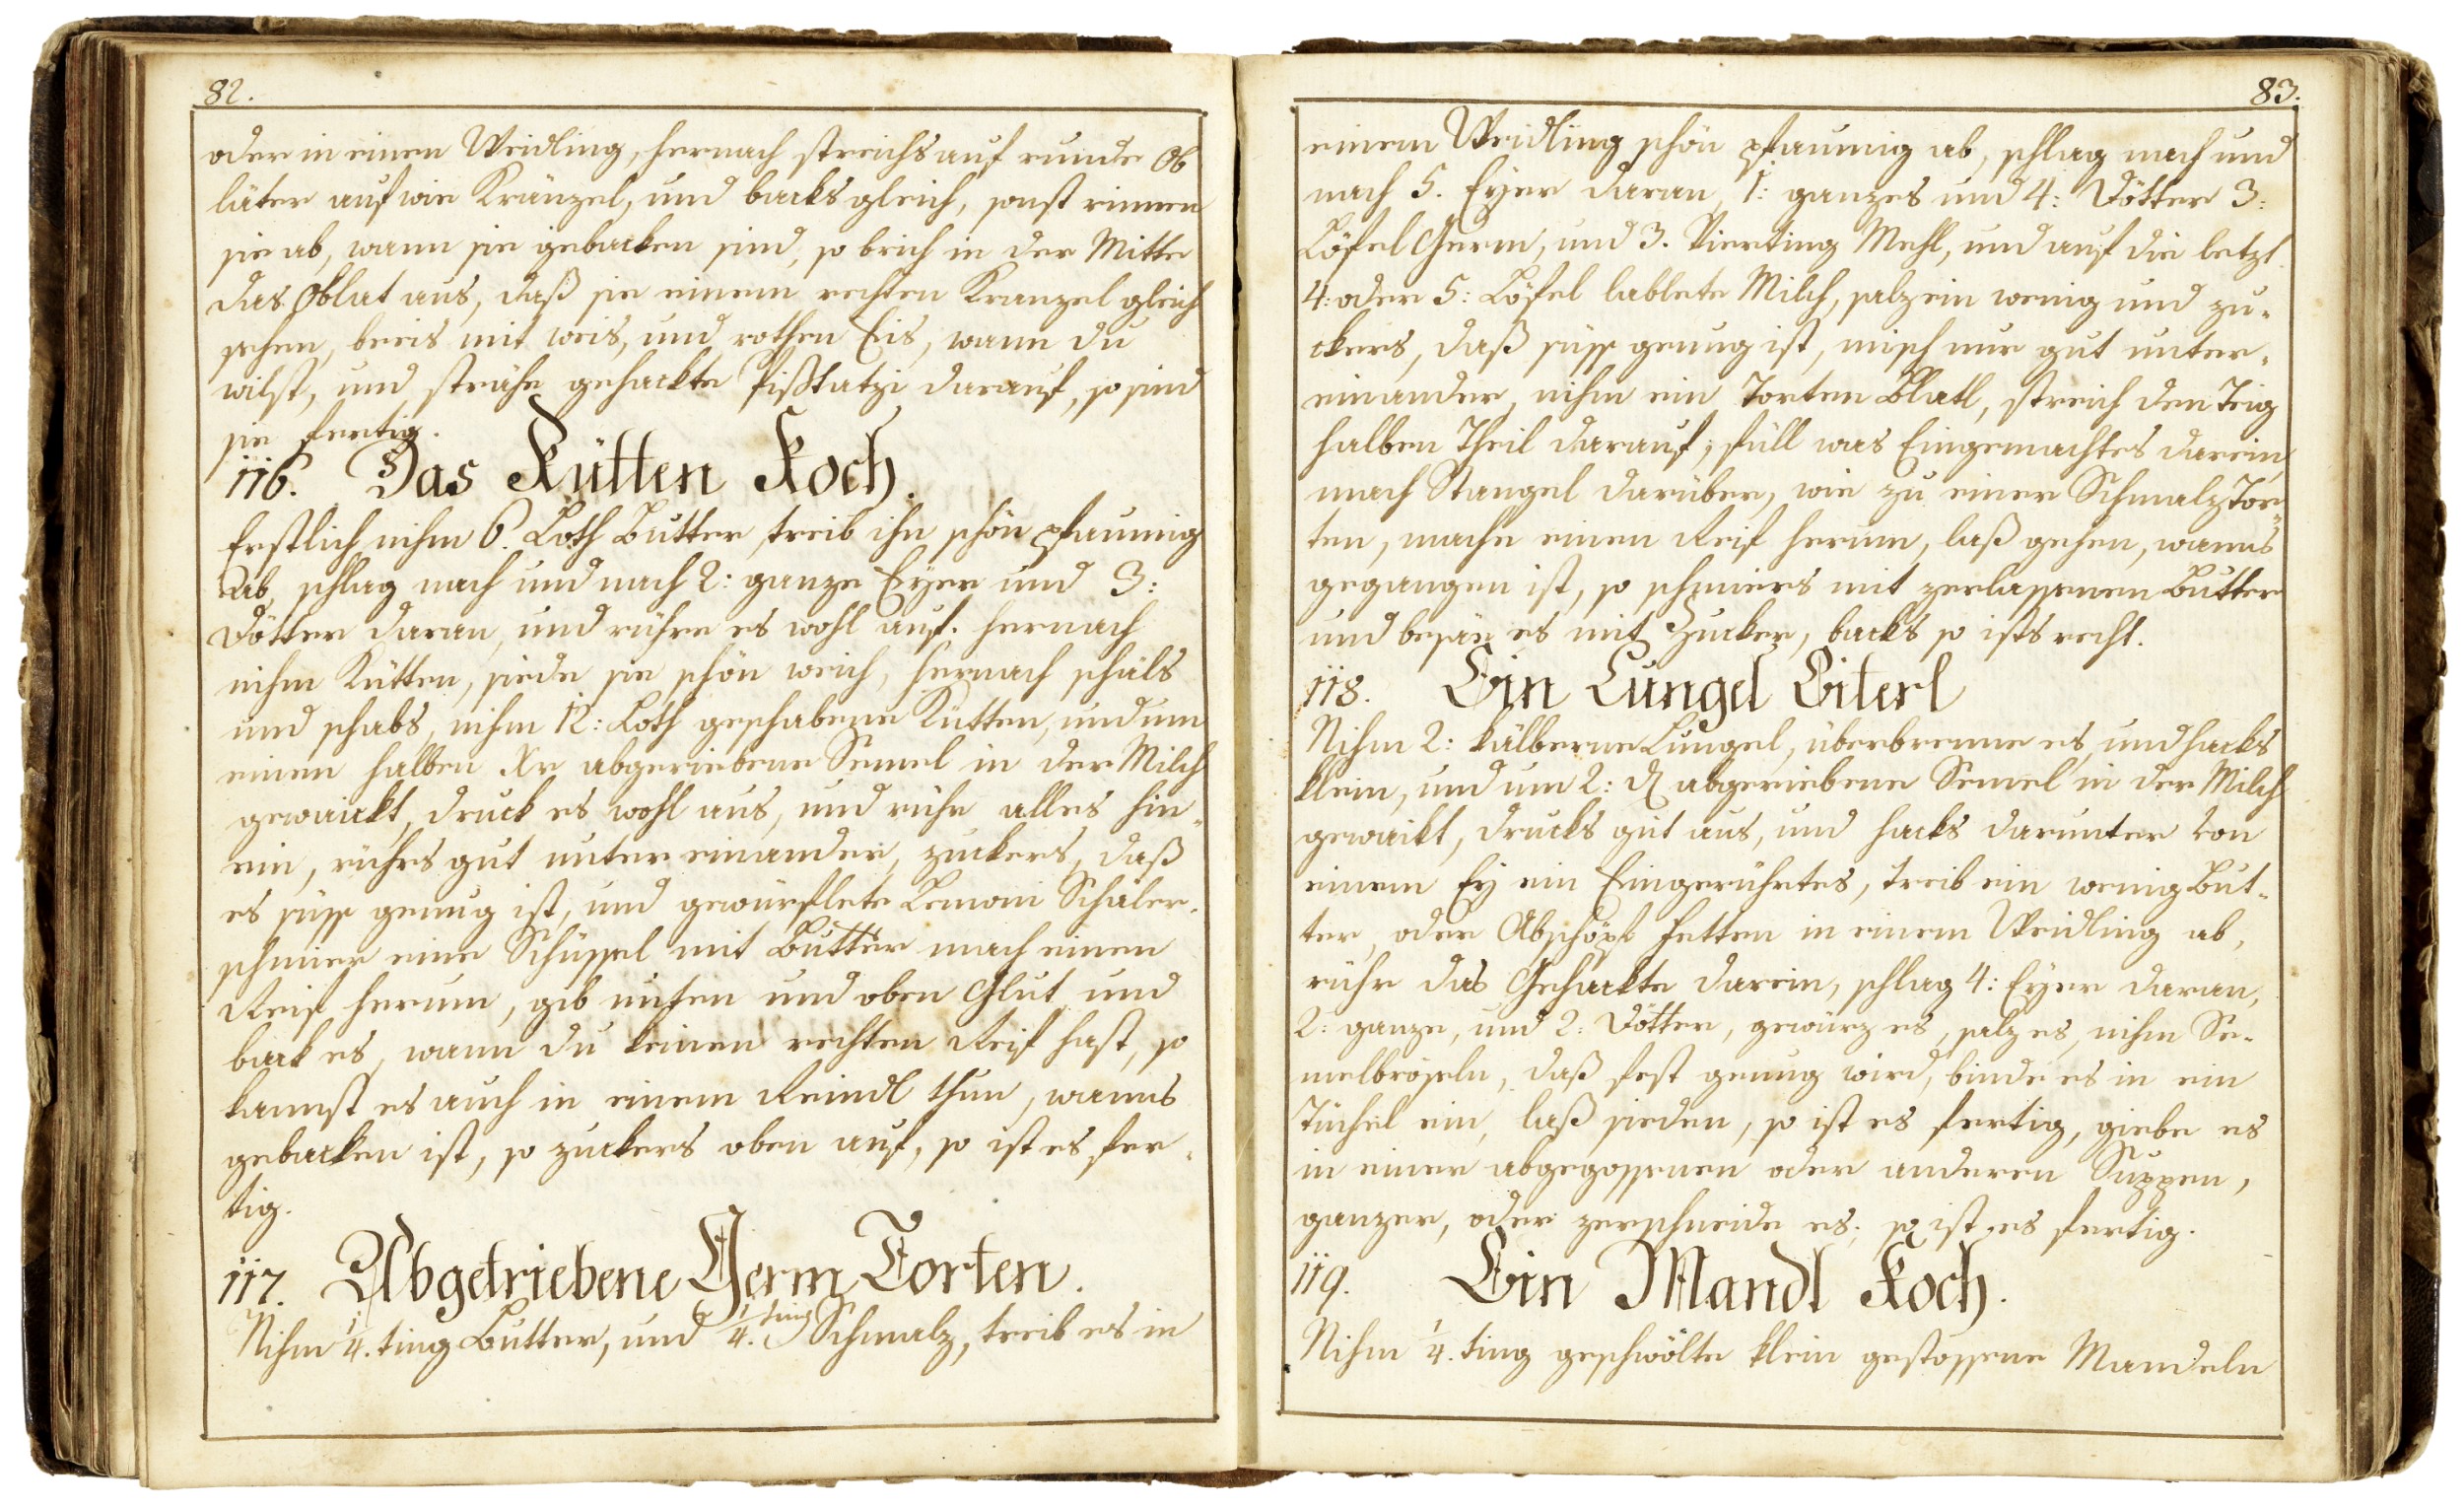 82.
oder in einen Weidling, hernach streichs auf runde Ob
läter auf wie Kränzel, und backs gleich, sonst rinnen
sie ab, wann sie gebacken sind, so brich in der Mitte
das Oblat aus, daß sie einem rechten Kranzel gleich
sehen, bereis mit weis, und rothen Eis, wann du
wilst, und strähe gehackte Pißtatzi darauf, so sind
sie fertig.
116. Das Kütten Koch.
Erstlich nihm 6. Loth Butter, treib ihn schön pfaumig
ab, schlag nach und nach 2: ganze Eyer und 3:
Dötter daran, und rühre es wohl auf. hernach
nihm Kütten, siede sie schön weich, hernach schäls
und schabs, nihm 12: Loth geschabene Kütten, und um
einen halben Xr abgeriebene Semel in der Milch
geweickt, druck es wohl aus, und rühr alles hin„
ein, rührs gut unter einander, zuckers, daß
es süss genug ist, und gewürflete Lemoni Schäler.
schmier eine Schüssel mit Butter mach einen
Reif herum, gib unten und oben Glut und
back es, wann du keinen rechten Reif hast, so
kannst es auch in einem Reindl thun, wanns
gebacken ist, so zuckers oben auf, so ist es fer„
tig.
117. Abgetriebene Germ Torten.
Nihm 1/4.ting Butter, und 1/4.ting Schmalz, treib es in
83.
einem Weidling schön pfaumig ab, schlag nach und
nach 5. Eyer daran 1: ganzes und 4: Dötter 3:
Löfel Germ, und 3. Vierting Mehl, und auf die letzt
4: oder 5: Löfel lablete Milch, salz ein wenig und zu„
ckers, daß süss genug ist, misch nur gut unter„
einander, nihm ein Torten Blatl, streich den Teig
halben Theil darauf, füll was Eingemachtes darein,
mach Stangel darüber, wie zu einer Schmalz Tor„
ten, mache einen Reif herum, laß gehen, wanns
gegangen ist, so schmiers mit zerlassenen Butter
und besäe es mit Zucker, backs so ists recht.
118. Ein Lungel Eiterl
Nihm 2: kälberne Lungel, überbrenne es, und hacks
klein, und um 2: ₰ abgeriebene Semel in der Milch
geweickt, drucks gut aus, und hacks darunter von
einem Ey ein Eingerührtes, treib ein wenig But„
ter, oder Abschöpf Fetten in einem Weidling ab,
rühr das Gehackte darein, schlag 4: Eyer daran,
2: ganze, und 2: Dötter, gewürz es, salz es, nihm Se„
melbröseln, daß fest genug wird, binde es in ein
Tüchel ein, laß sieden, so ist es fertig, giebe es
in einer abgegossenen oder anderen Suppen,
ganzer, oder zerschneide es, so ist es fertig.
119. Ein Mandl Koch.
Nihm 1/4.ting geschwölte klein gestossene Mandeln